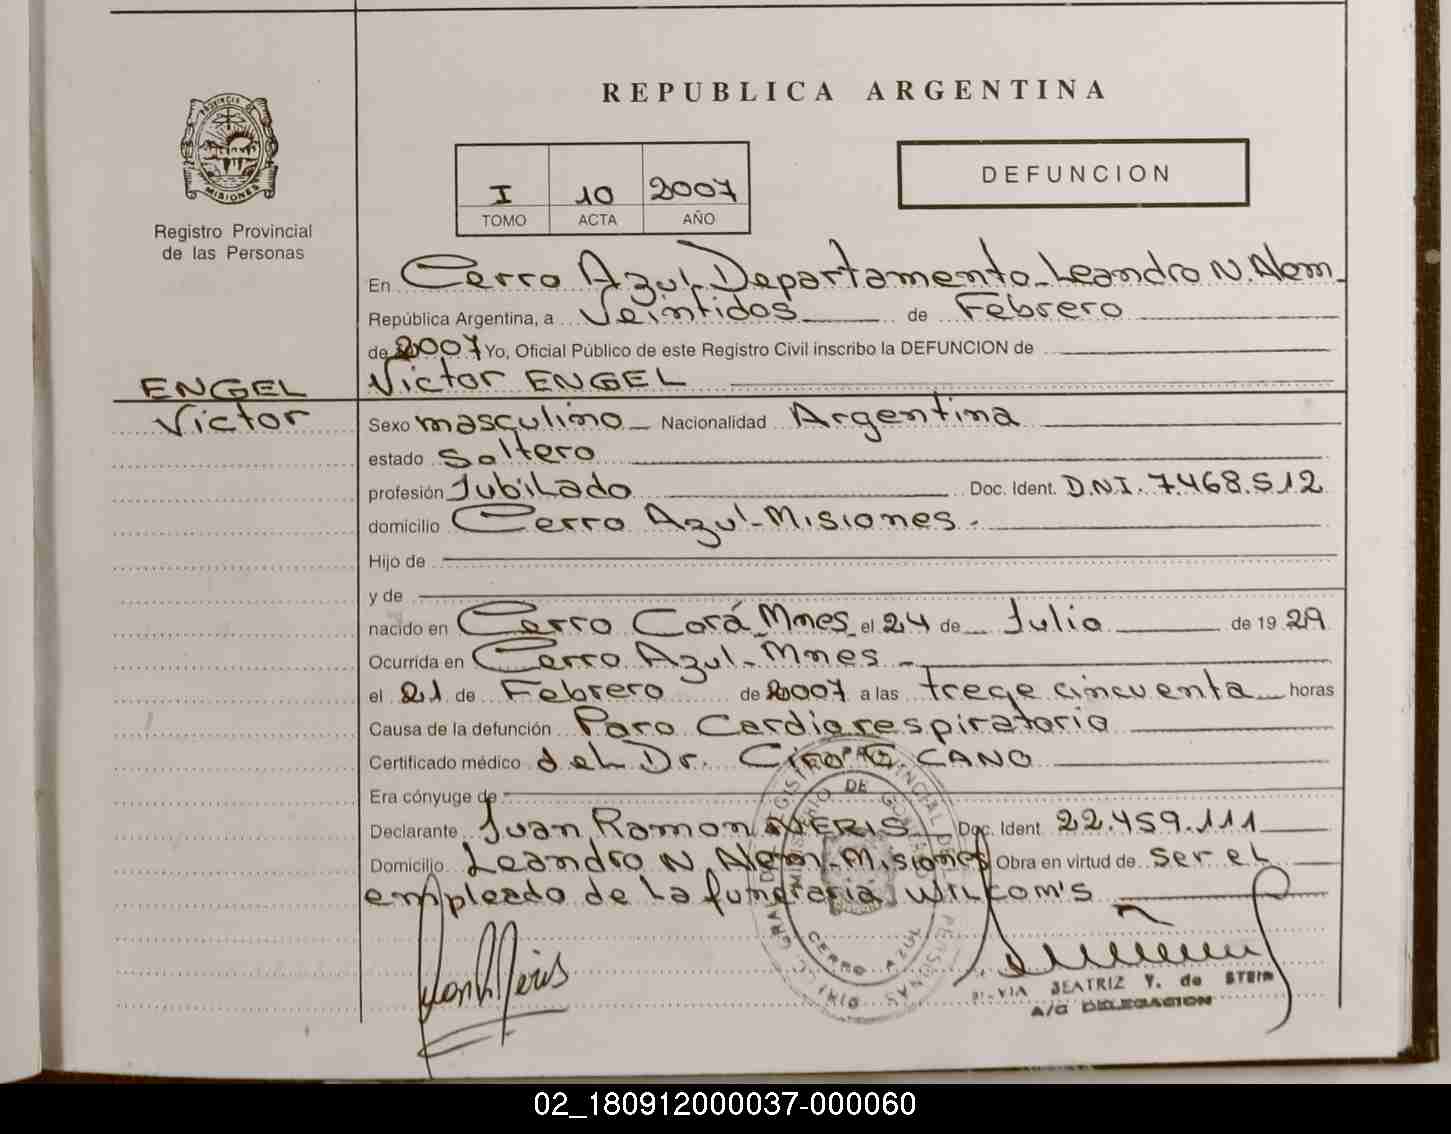 REPUBLICA ARGENTINA
PROVINCIA DE
MISIONES
Registro Provincial
de las Personas
I 10 2007
TOMO ACTA AÑO
DEFUNCION
En Cerro Azul-Departamento-Leandro N. Alem-
República Argentina, a Veintidos de Febrero
de 2007 Yo, Oficial Público de este Registro Civil inscribo la DEFUNCION de
Victor ENGEL
ENGEL
Victor
Sexo masculino Nacionalidad Argentina
estado Soltero
profesión Jubilado Doc. Ident. D.N.I. 7.468.512
domicilio Cerro Azul-Misiones.
Hijo de
y de
nacido en Cerro Corá-Mnes. el 24 de Julio de 1929
Ocurrida en Cerro Azul-Mnes
el 21 de Febrero de 2007 a las trece cincuenta horas
Causa de la defunción Paro Cardiorespiratorio
Certificado médico del Dr. Ciro G. CANO
Era cónyuge de
Declarante Juan Ramon NERIS Doc. Ident. 22.459.111
Domicilio Leandro N. Alem-Misiones Obra en virtud de ser el
empleado de la funeraria WILCOM'S
CERRO AZUL
BEATRIZ Y. de STEIN
A/C DELEGACION
02_180912000037-000060